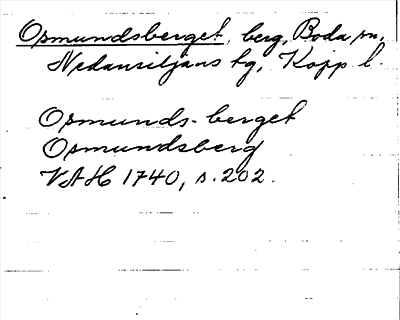 Osmundsberget, berg, Boda sn,
Nedansiljans tg, Kopp. l.
Osmunds-berget
Osmundsberg
VAH 1740, s. 202.